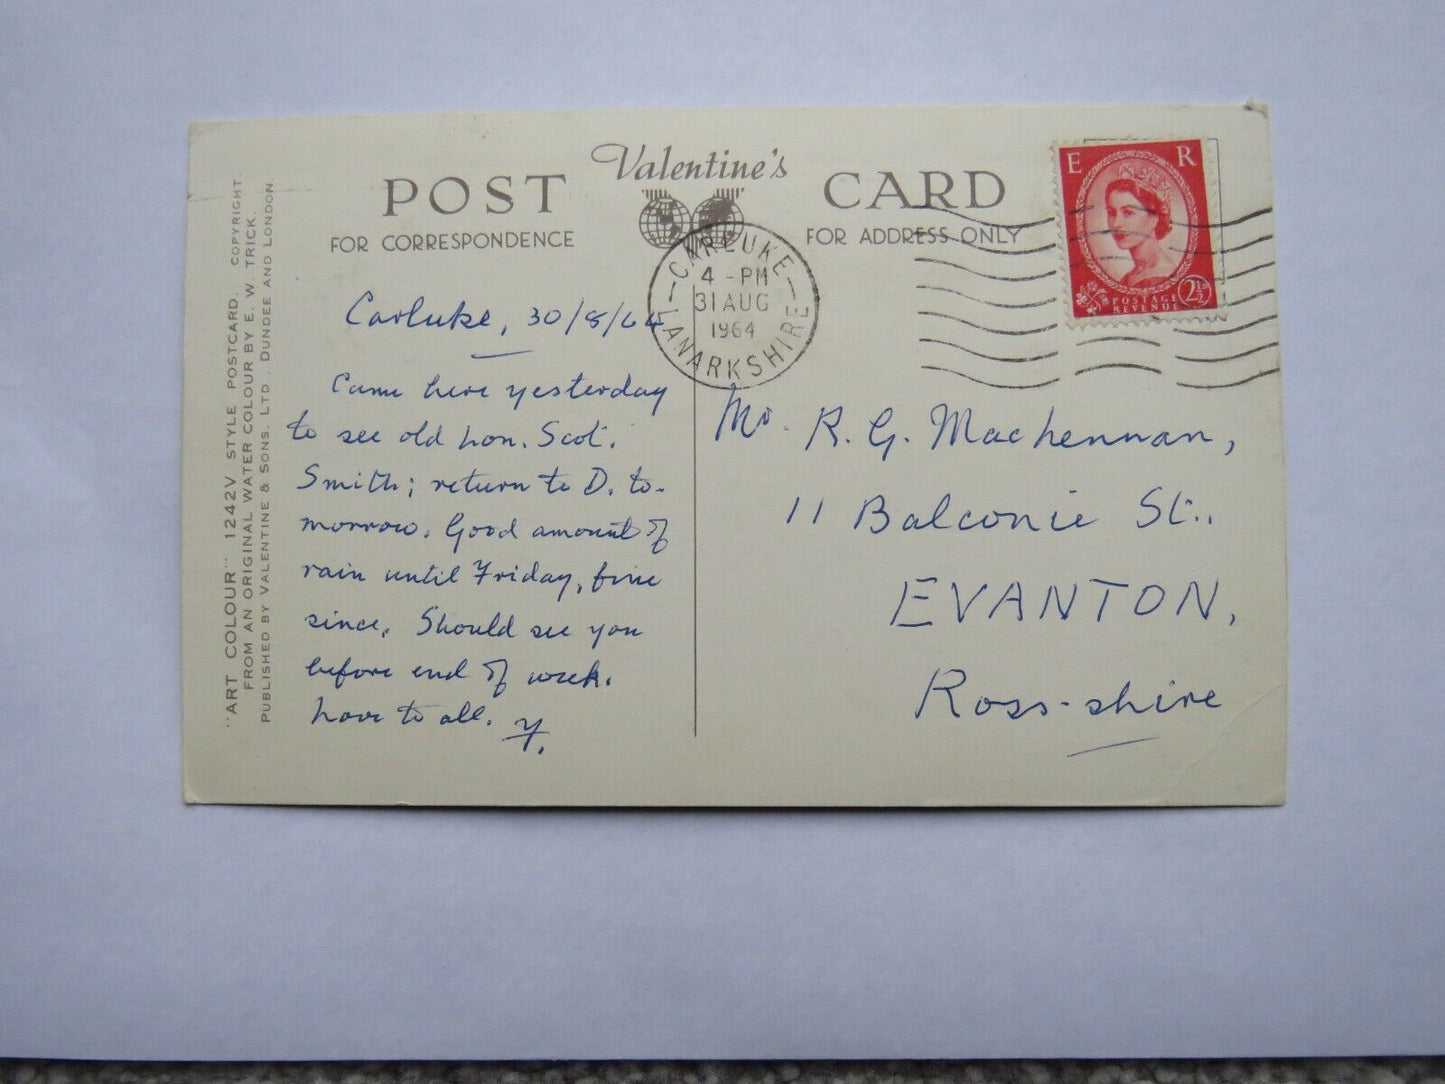 Valentine's
POST CARD
FOR CORRESPONDENCE
FOR ADDRESS ONLY
"ART COLOUR" 1242V STYLE POSTCARD. COPYRIGHT.
FROM AN ORIGINAL WATER COLOUR BY E. W. TRICK.
PUBLISHED BY VALENTINE & SONS, LTD., DUNDEE AND LONDON.
Carluke, 30/8/64
Came here yesterday
to see old hon. Scot.
Smith; return to D. to-
morrow. Good amount of
rain until Friday, fine
since. Should see you
before end of week.
Love to all. Y.
CARLUKE
4 - PM
31 AUG
1964
LANARKSHIRE
E R
POSTAGE
REVENUE
2½D
Mr. R. G. Maclennan,
11 Balconie St.,
EVANTON,
Ross-shire